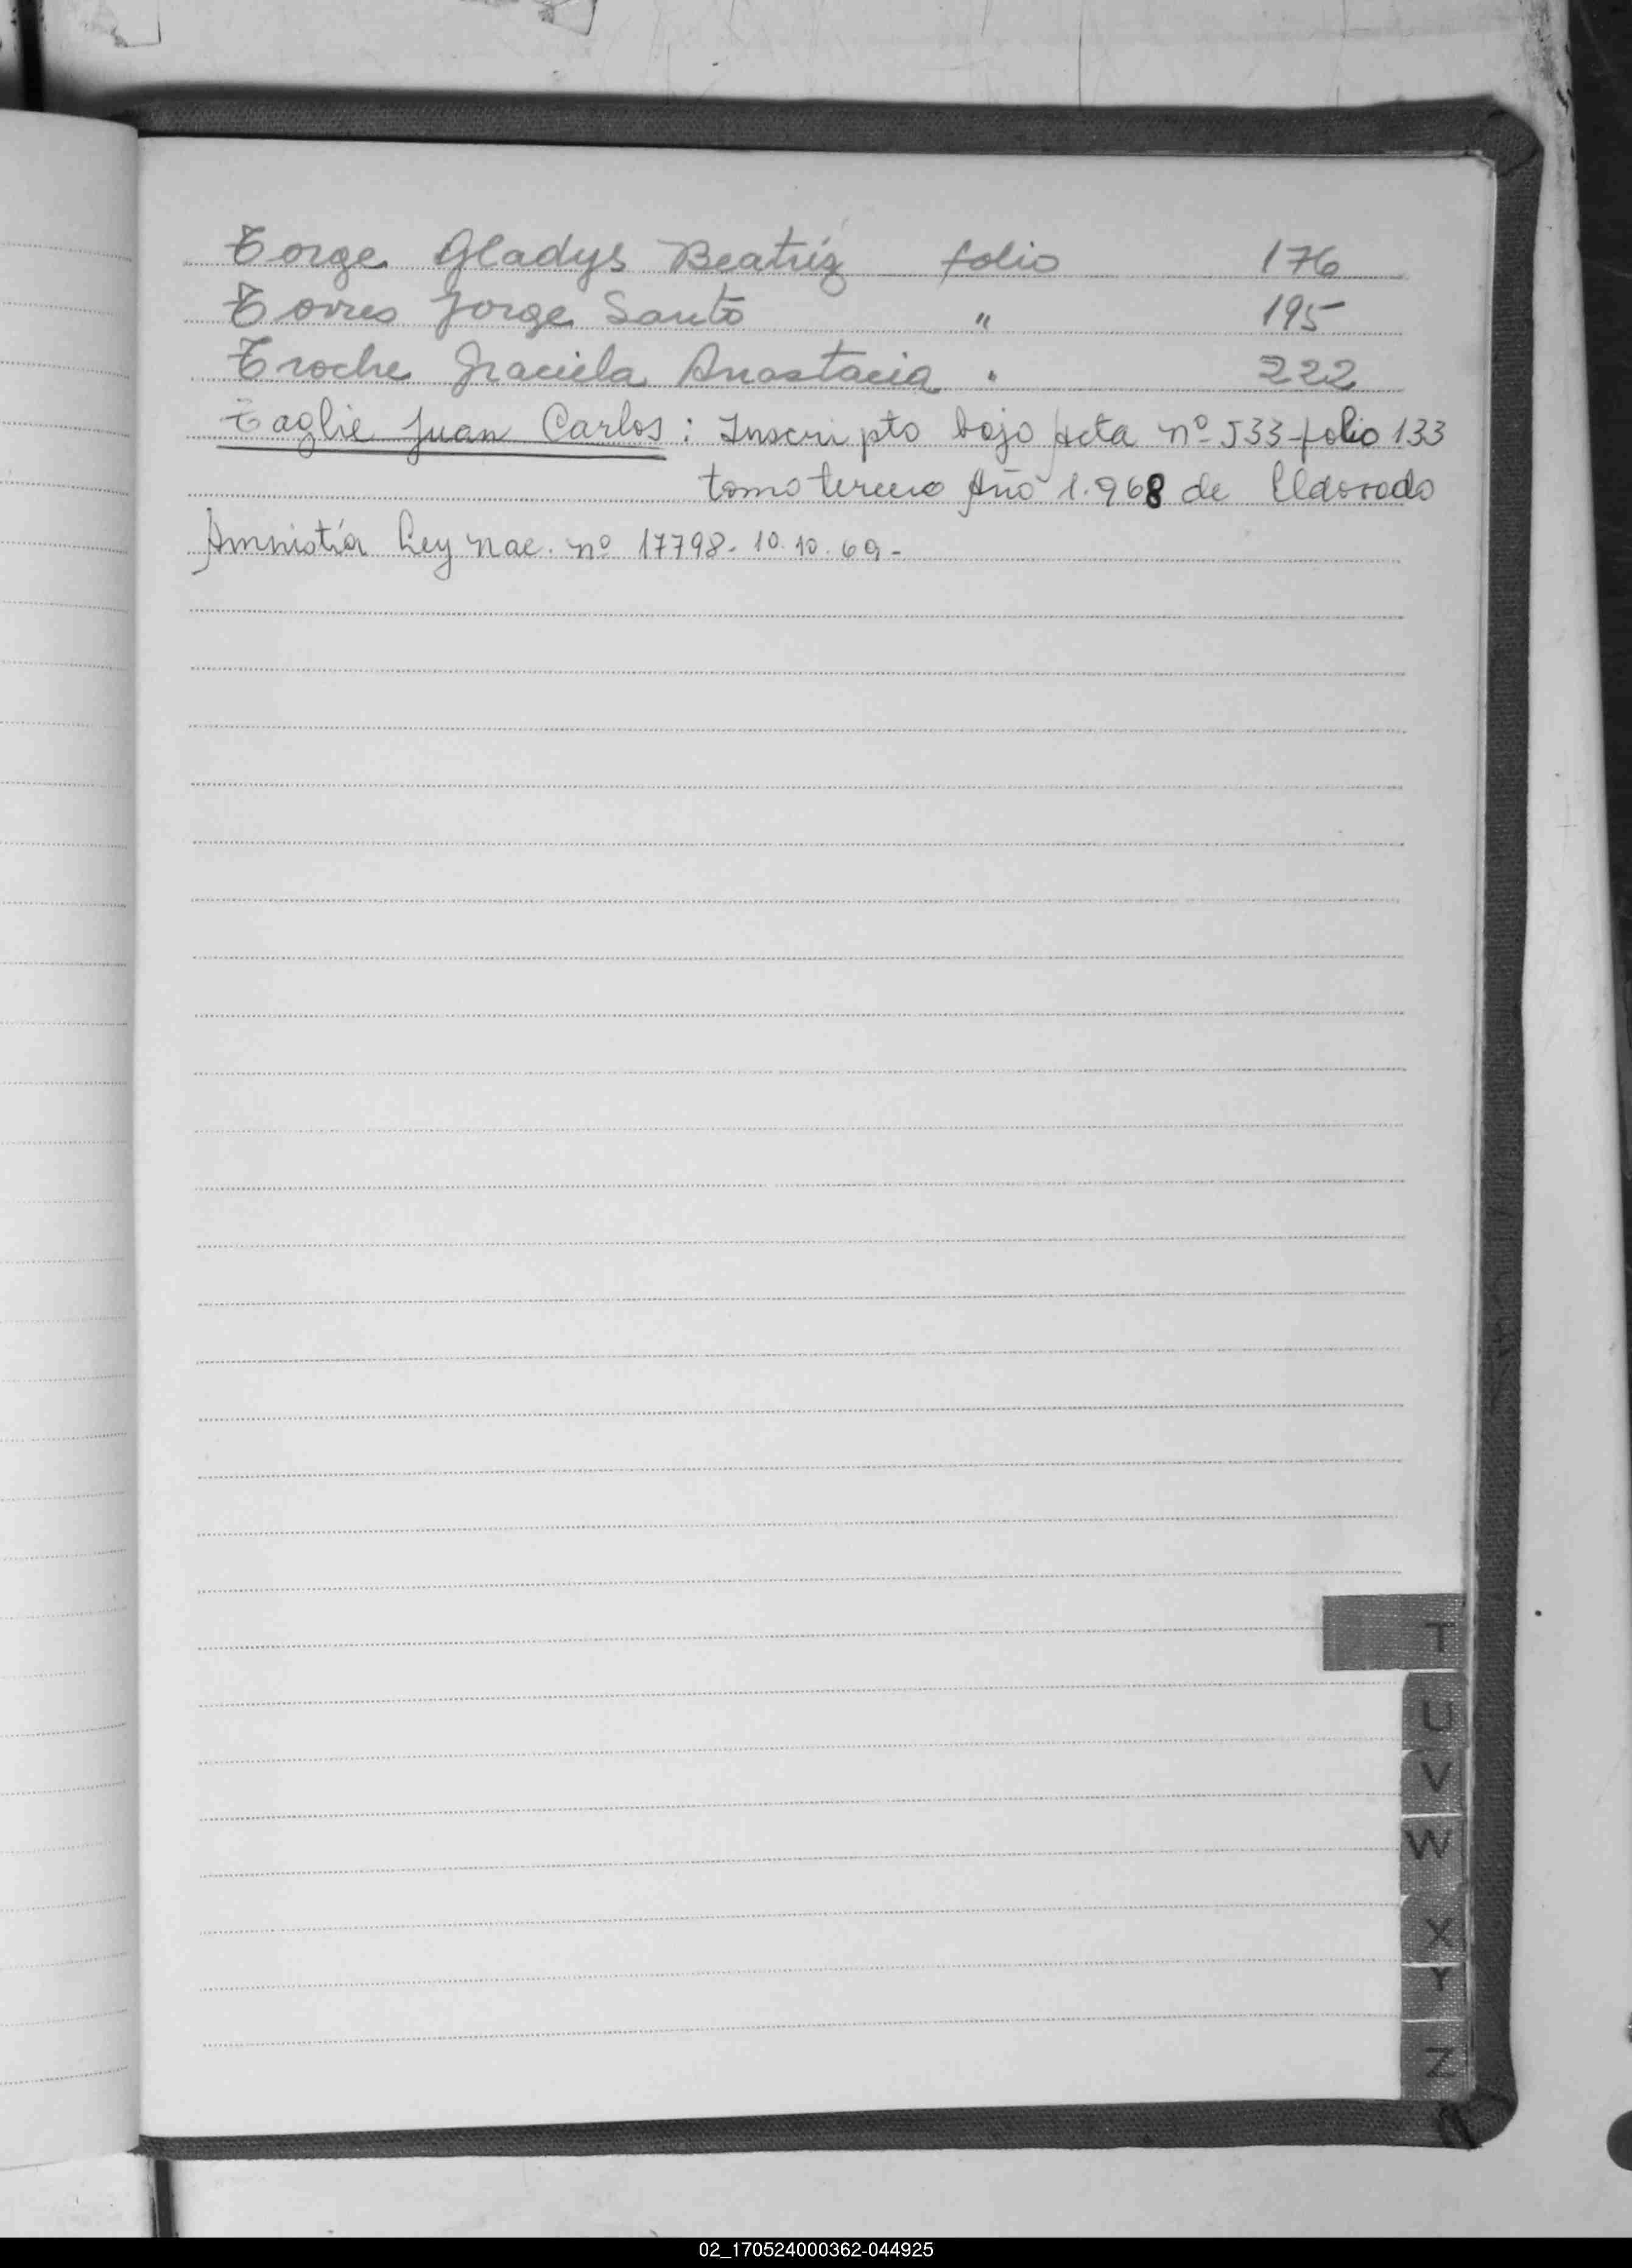 Torge Gladys Beatriz folio 176
Torres Jorge Santo " 195
Troche Graciela Anastacia " 222
Taglie Juan Carlos: Inscripto bajo Acta nº 533-folio 133
tomo tercero Año 1.968 de Eldorado
Amnistía Ley Nac. nº 17798. 10.10.69.-
T
U
V
W
X
Y
Z
02_170524000362-044925